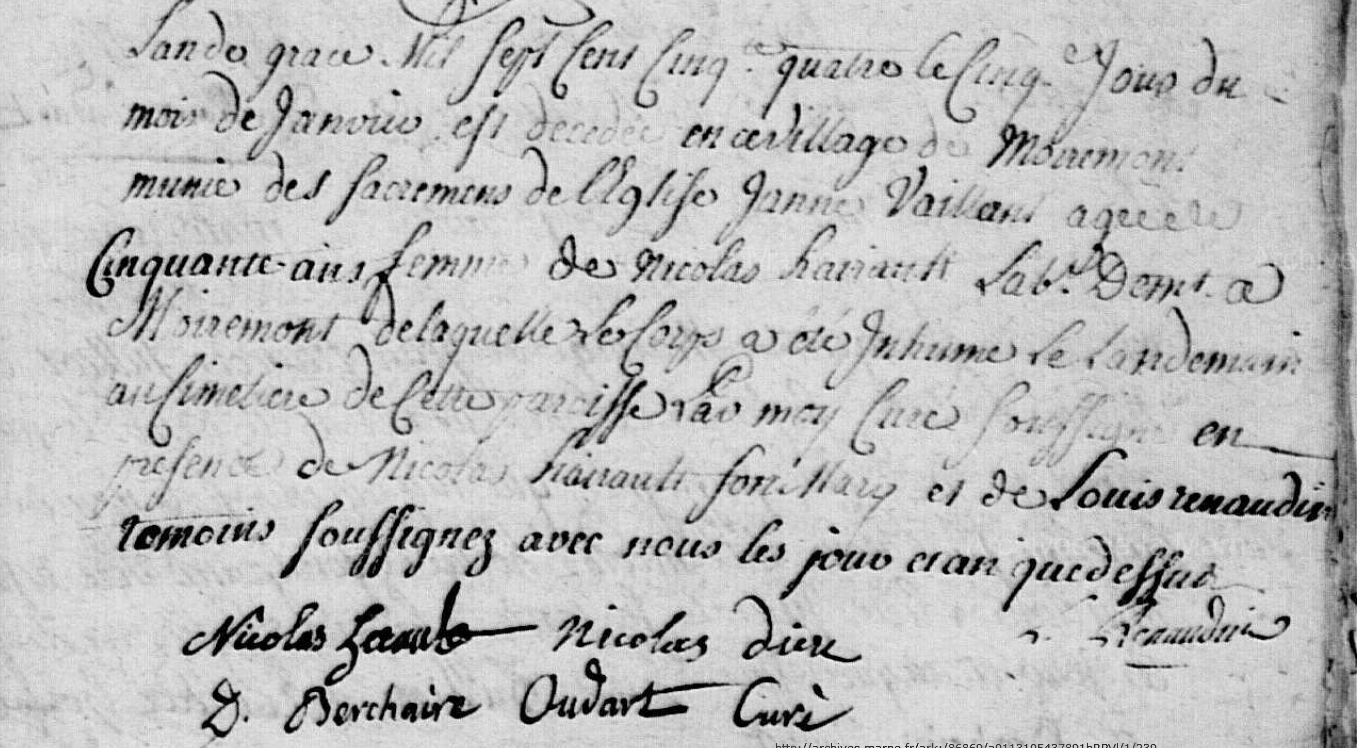 Lan de grace Mil Sept Cent Cinq.te quatre le Cinq.e Jour du
mois de Janvier est decedée en ce village de Moiremont
munie des sacremens de l'Eglise Janne Vaillant agée de
Cinquante ans femme de Nicolas hairault Lab.r Demt. a
Moiremont de laquelle le Corps a été Inhumé le Landemain
au Cimetiere de Cette paroisse Par moy Curé soussigné en
presence de Nicolas hairault son Mary et de Louis renaudin
temoins soussignez avec nous les jour et an que dessus
Nicolas Nicolas diere Renaudin
D. Berchaire Oudart Curé